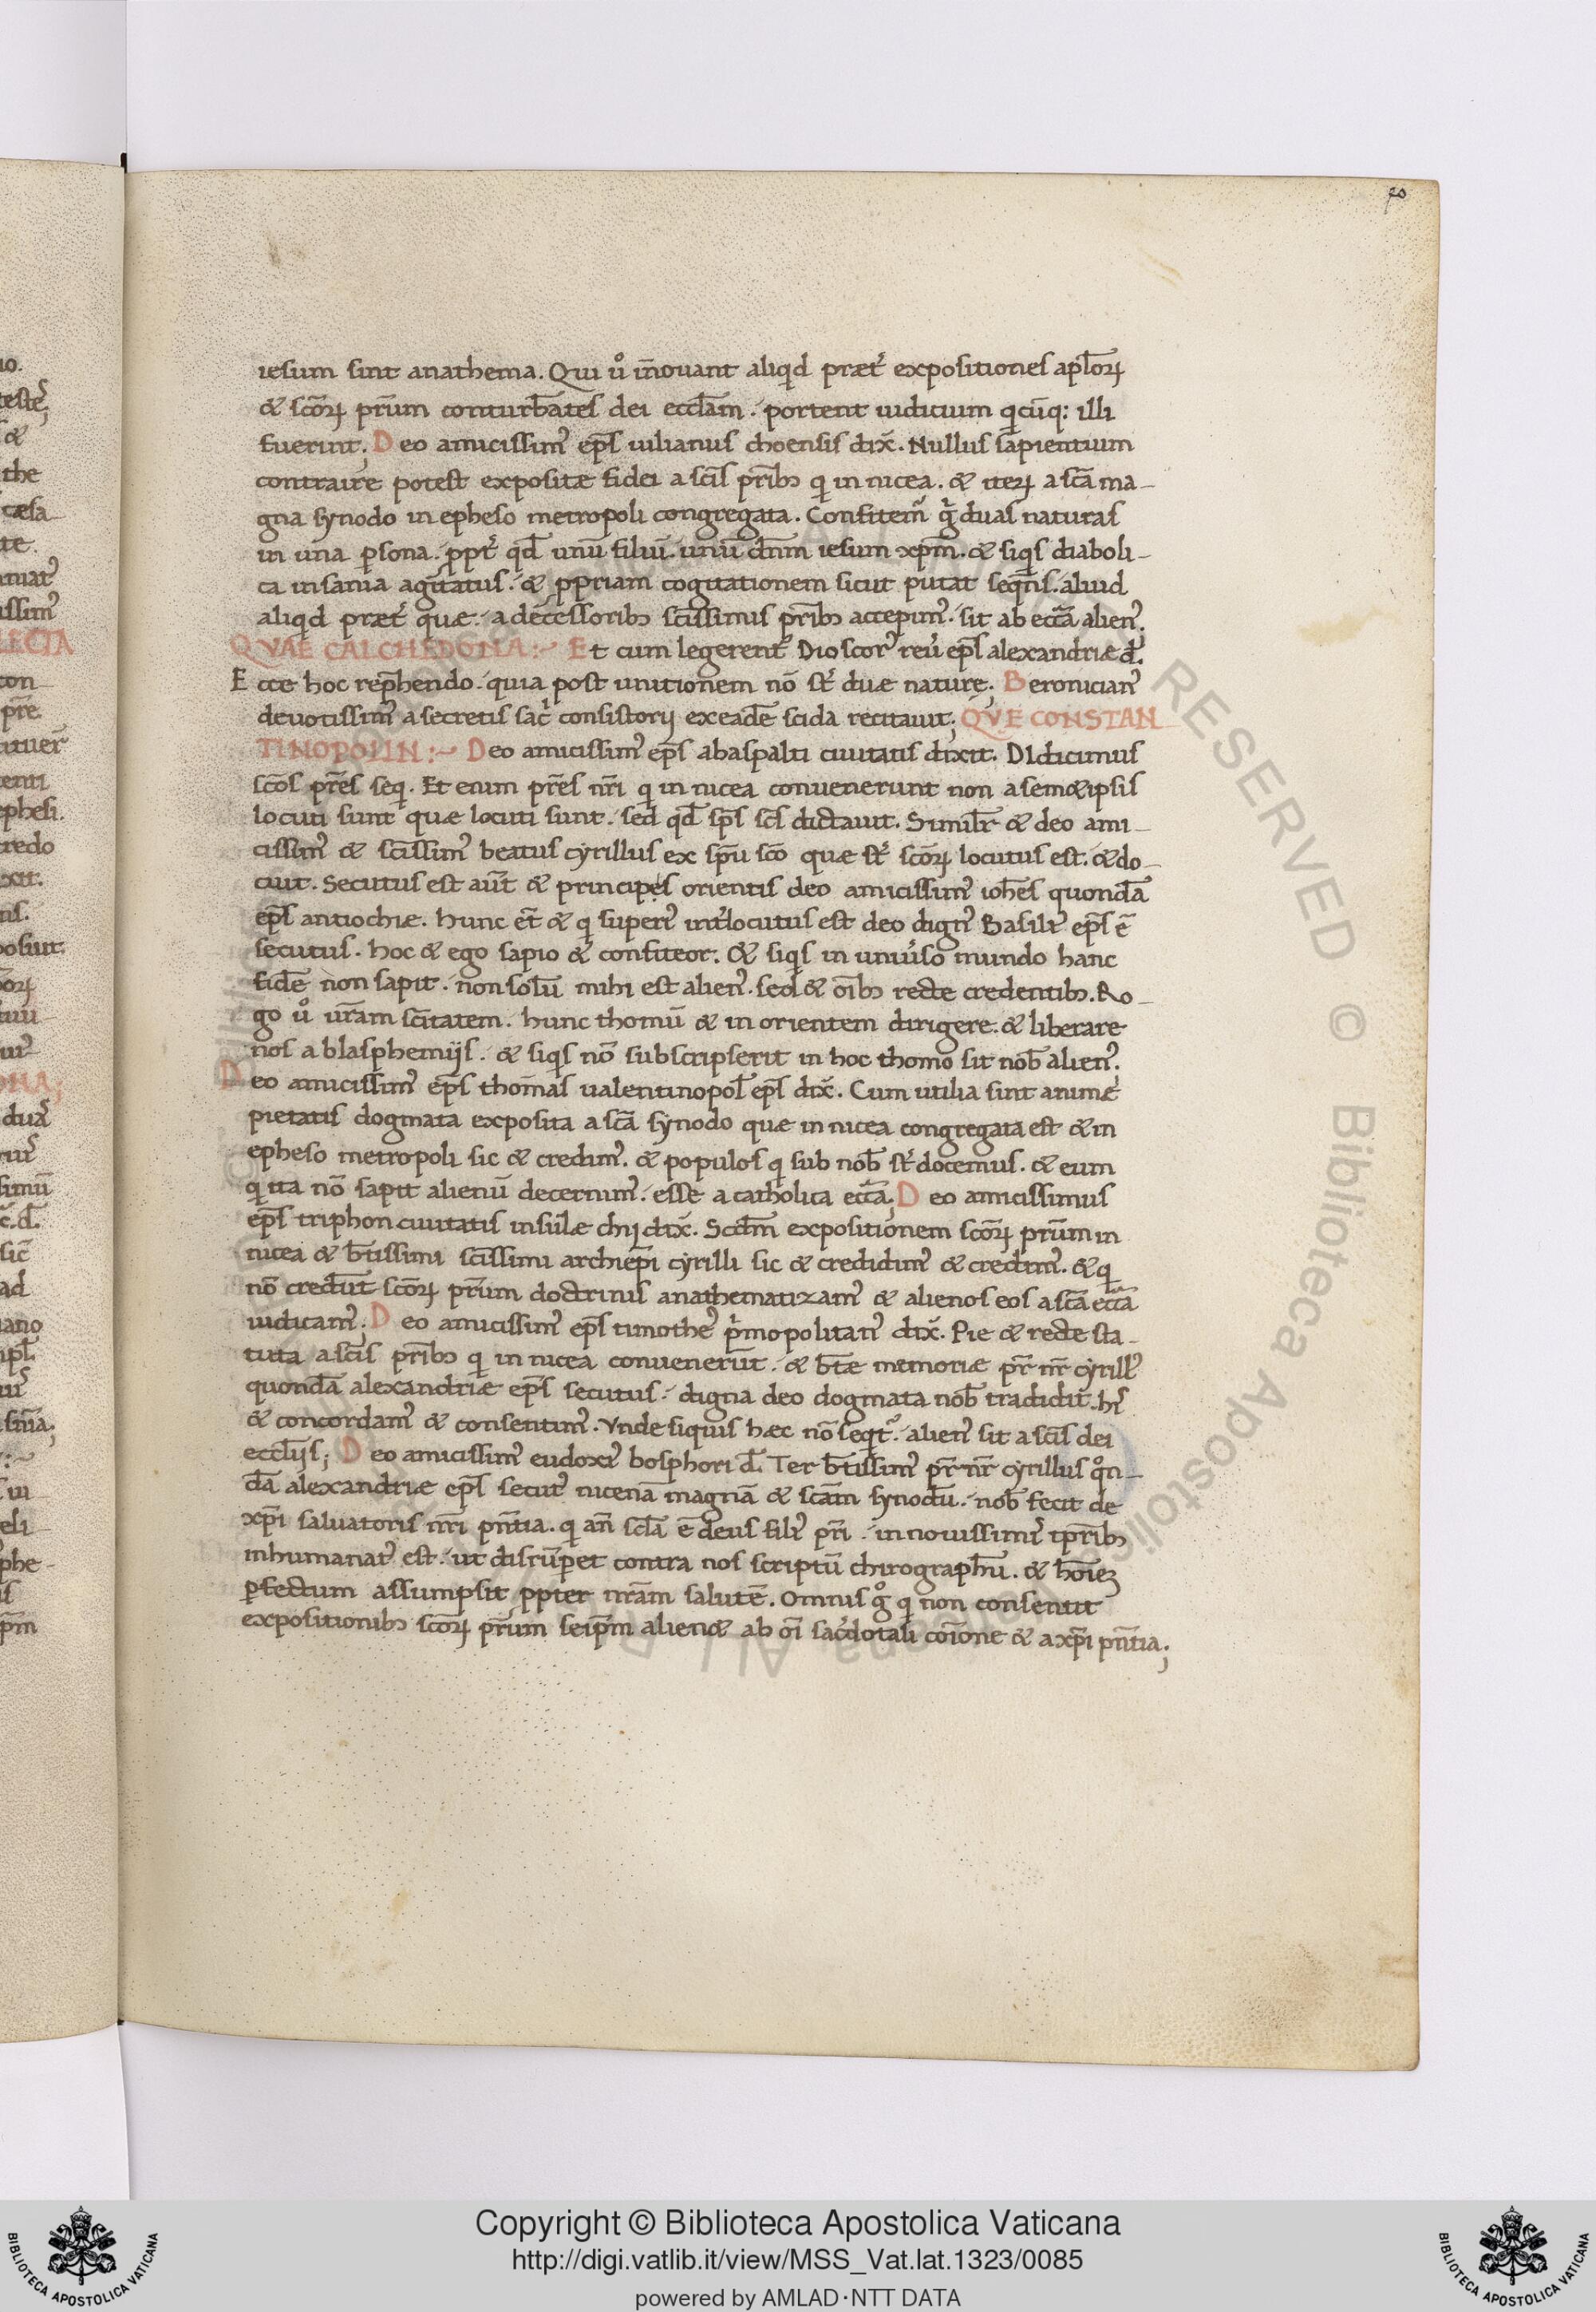 iesum sint anathema. Qui ů in̄ouant aliqd præt͛ expositiones apl̄oꝝ
& sc̄oꝝ pr̄um conturb̄ates dei eccl̄am. portent iudicium qcūq: illi
fuerint; Deo amicissim᾽ ep̄s iulianus choensis dix̄. Nullus sapientium
contraire potest expositæ fidei a sc̄is prīb; q in nicea. & iteꝝ a sc̄a ma-
gna synodo in epheso metropoli congregata. Confitem᾽ g̊ duas naturas
in una ꝑsona. ꝓpt͛ qd̄ unū filiū. unū dn̄m iesum xp̄m. & siqs diaboli-
ca insania agitatus. & ꝓpriam cogitationem sicut putat seqn̄s. aliud
aliqd præt͛ quæ. a decessorib; sc̄issimis prīb; accepim᾽. sit ab ecc̄a alien᾽;
QVAE CALCHEDONA:~ Et cum legerent͛ Dioscor᾽ reu͛ ep̄s alexandriæ d̄.
Ecce hoc rep̄hendo. quia post unitionem nō st͛ duæ naturę; Beronician᾽
deuotissim᾽ a secretis sac͛ consistorij ex eadē scida recitauit; QVE CONSTAN
TINOPOLIN:~ Deo amicissim᾽ ep̄s abaspalti ciuitatis dixit. DIdicimus
sc̄os pr̄es seq. Et enim pr̄es nr̄i q in nicea convenerunt non a sem&ipsis
locuti sunt quæ locuti sunt. sed qd̄ sp̄s sc̄s dictauit. Simil̄r & deo ami-
cissim᾽ & sc̄issim᾽ beatus cyrillus ex sp̄u sc̄o quæ st͛ sc̄oꝝ locutus est. & do-
cuit. Secutus est aūt & principes orientis deo amicissim᾽ ioh̄es quondā
ep̄s antiochiæ. hunc et̄ & q superi᾽ int͛locutus est deo dign᾽ Basili᾽ ep̄s ē
secutus. hoc & ego sapio & confiteor. & siqs in uniu͛so mundo hanc
fidē non sapit. non solū mihi est alien᾽. sed & oīb; recte credentib;. Ro-
go ů ur̄am sc̄itatem. hunc thomū & in orientem dirigere. & liberare
nos a blasphemijs. & siqs nō subscripserit in hoc thomo sit nob̄ alien᾽;
Deo amicissim᾽ ep̄s thomas ualentinopol̄ ep̄s dix̄. Cum utilia sint animę
pietatis dogmata exposita a sc̄a synodo quæ in nicea congregata est & in
epheso metropoli sic & credim᾽. & populos q sub nob̄ st͛ docemus. & eum
q ita nō sapit alienū decernim᾽. esse a catholica ecc̄a; Deo amicissimus
ep̄s triphon ciuitatis insulæ chij dix̄. Scd̄m expositionem sc̄oꝝ pr̄um in
nicea & b̄tissimi sc̄issimi archiep̄i cyrilli sic & credidim᾽ & credim᾽. & q
nō credūt sc̄oꝝ pr̄um doctrinis anathematizam᾽ & alienos eos a sc̄a ecc̄a
iudicam᾽; Deo amicissim᾽ ep̄s timothe᾽ p͛mopolitan᾽ dix̄. Pie & recte sta-
tuta a sc̄is prīb; q in nicea convenerūt. & b̄tæ memoriæ pr̄ nr̄ cyrill᾽
quondā alexandriæ ep̄s secutus. digna deo dogmata nob̄ tradidit. his
& concordam᾽ & consentim᾽. Vnde siquis hæc nō seqt᾽. alien᾽ sit a sc̄is dei
eccl̄ijs; Deo amicissim᾽ eudoxi᾽ bosphori d̄. Ter b̄tissim᾽ pr̄ nr̄ cyrillus qn̊-
dā alexandriæ ep̄s secut᾽ nicenā magnā & sc̄am synodū. nob̄ fecit de
xp̄i saluatoris nr̄i pn̄tia. q an̄ scl̄a ē deus fili᾽ pr̄i. in nouissimis tpr̄ib;
inhumanat᾽ est. ut disrūpet contra nos scriptū chirographū. & hōiem
ꝑfectum assumpsit ꝓpter nr̄am salutē. Omnis g̊ q non consentit
expositionib; sc̄oꝝ pr̄um seip̄m alien& ab oī sac͛dotali coīone & a xp̄i pn̄tia;
Copyright © Biblioteca Apostolica Vaticana
http://digi.vatlib.it/view/MSS_Vat.lat.1323/0085
powered by AMLAD·NTT DATA